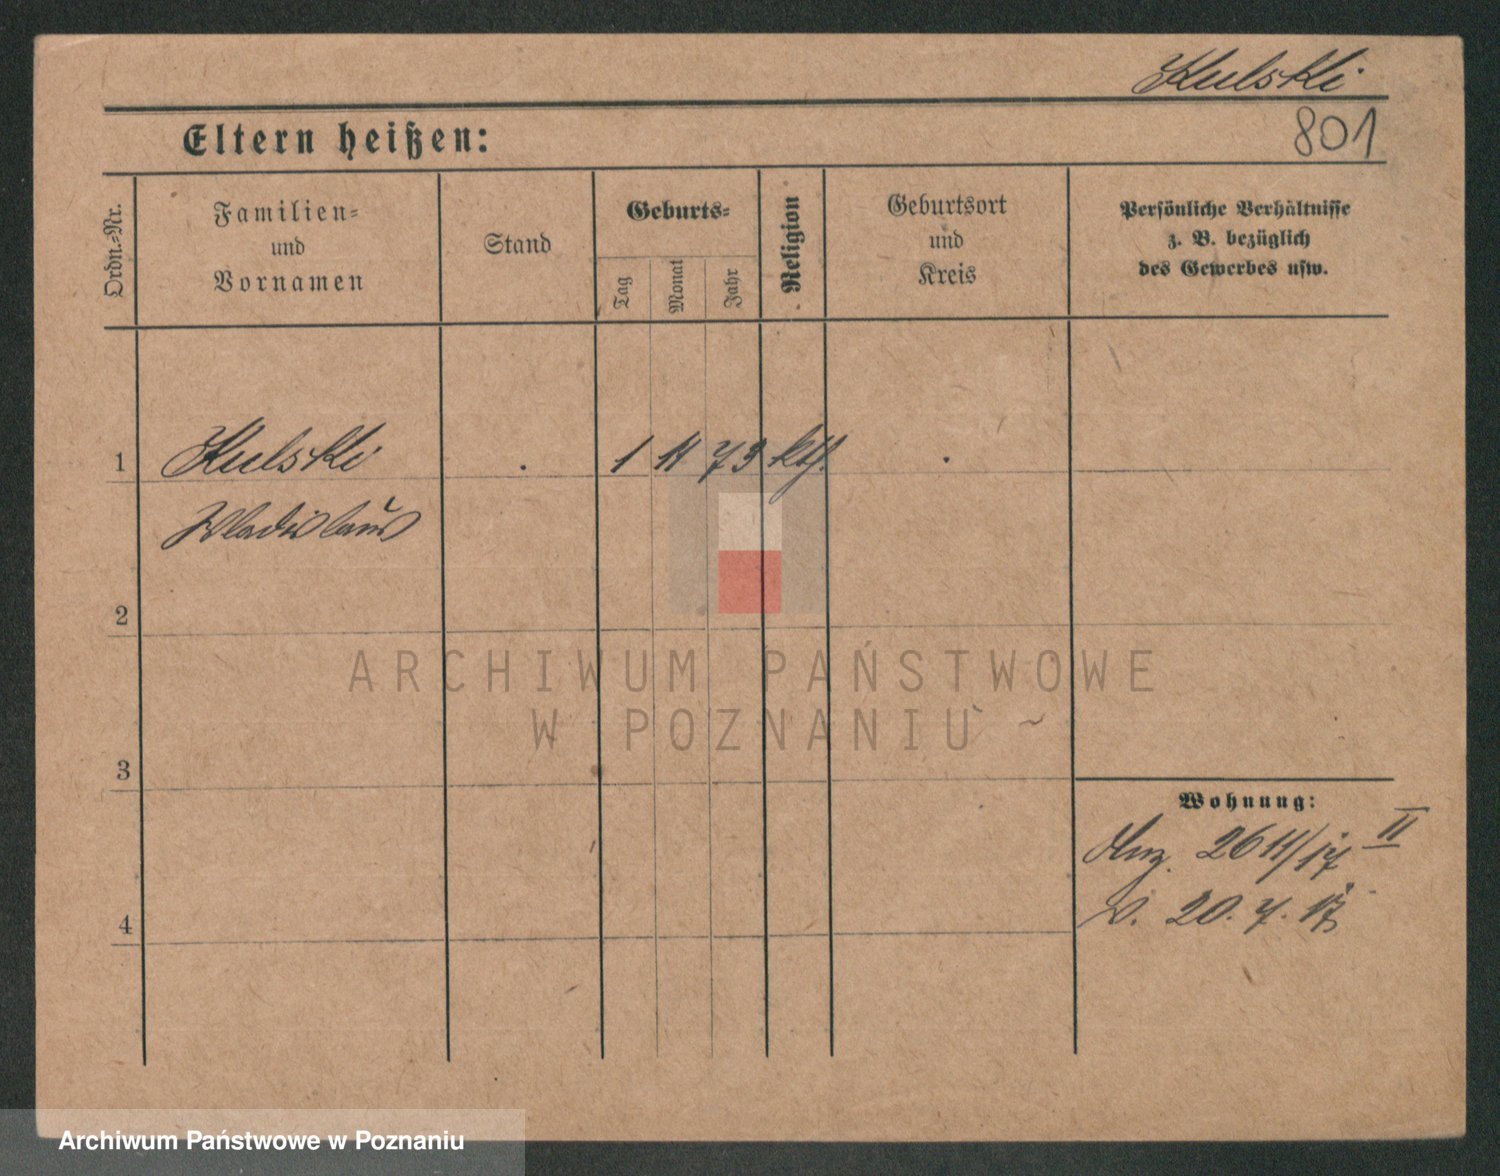 Kulski
801
Eltern heißen:
Ordn.=Nr.
Familien=
und
Vornamen
Stand
Geburts=
Tag
Monat
Jahr
Religion
Geburtsort
und
Kreis
Persönliche Verhältnisse
z. B. bezüglich
des Gewerbes usw.
1 Kulski . 1 11 73 kth. .
Wladislaus
2
ARCHIWUM PAŃSTWOWE
W POZNANIU
3
Wohnung:
26 11/17 II
v. 20. 7. 17
4
Archiwum Państwowe w Poznaniu